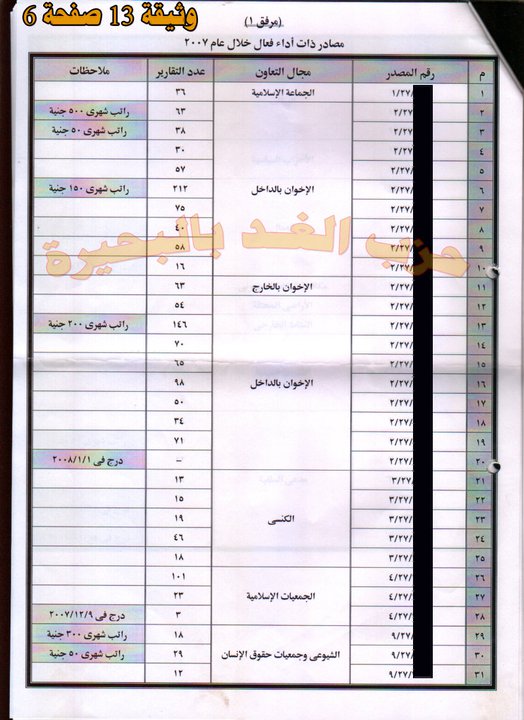 وثيقة 13 صفحة 6
(مرفق ١)
مصادر ذات أداء فعال خلال عام ٢٠٠٧
م رقم المصدر مجال التعاون عدد التقارير ملاحظات
١ ١/٢٧/ الجماعة الإسلامية ٣٦
٢ ٢/٢٧/ ٦٣ راتب شهرى ٥٠٠ جنية
٣ ٢/٢٧/ ٣٨ راتب شهرى ٥٠ جنية
٤ ٢/٢٧/ ٣٠
٥ ٢/٢٧/ ٥٧
٦ ٢/٢٧/ الإخوان بالداخل ٢١٢ راتب شهرى ١٥٠ جنية
٧ ٢/٢٧/ ٧٥
٨ ٢/٢٧/ ٤٠
حزب الغد بالبحيرة
٩ ٢/٢٧/ ٥٨
١٠ ٢/٢٧/ ١٦
١١ ٢/٢٧/ الإخوان بالخارج ٦٣
١٢ ٢/٢٧/ ٥٤
١٣ ٢/٢٧/ ١٤٦ راتب شهرى ٢٠٠ جنية
١٤ ٢/٢٧/ ٧٠
١٥ ٢/٢٧/ ٦٥
١٦ ٢/٢٧/ الإخوان بالداخل ٩٨
١٧ ٢/٢٧/ ٥٠
١٨ ٢/٢٧/ ٣٤
١٩ ٢/٢٧/ ٧١
٢٠ ٢/٢٧/ – درج فى ٢٠٠٨/١/١
٢١ ٣/٢٧/ ١٣
٢٢ ٣/٢٧/ ١٥
٢٣ ٣/٢٧/ الكنسى ١٩
٢٤ ٣/٢٧/ ٤٦
٢٥ ٣/٢٧/ ١٨
٢٦ ٤/٢٧/ ١٠١
٢٧ ٤/٢٧/ الجمعيات الإسلامية ٢٣
٢٨ ٤/٢٧/ ٣ درج فى ٢٠٠٧/١٢/٩
٢٩ ٩/٢٧/ ١٨ راتب شهرى ٣٠٠ جنية
٣٠ ٩/٢٧/ الشيوعى وجمعيات حقوق الإنسان ٢٩ راتب شهرى ٥٠ جنية
٣١ ٩/٢٧/ ١٢